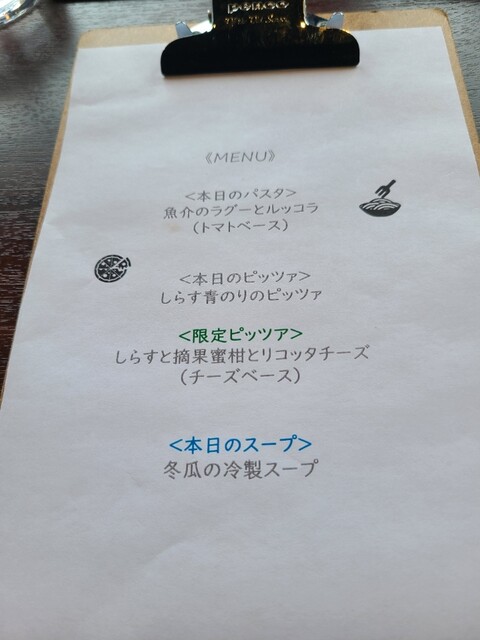 《MENU》
<本日のパスタ>
魚介のラグーとルッコラ
(トマトベース)
<本日のピッツァ>
しらす青のりのピッツァ
<限定ピッツア>
しらすと摘果蜜柑とリコッタチーズ
(チーズベース)
<本日のスープ>
冬瓜の冷製スープ